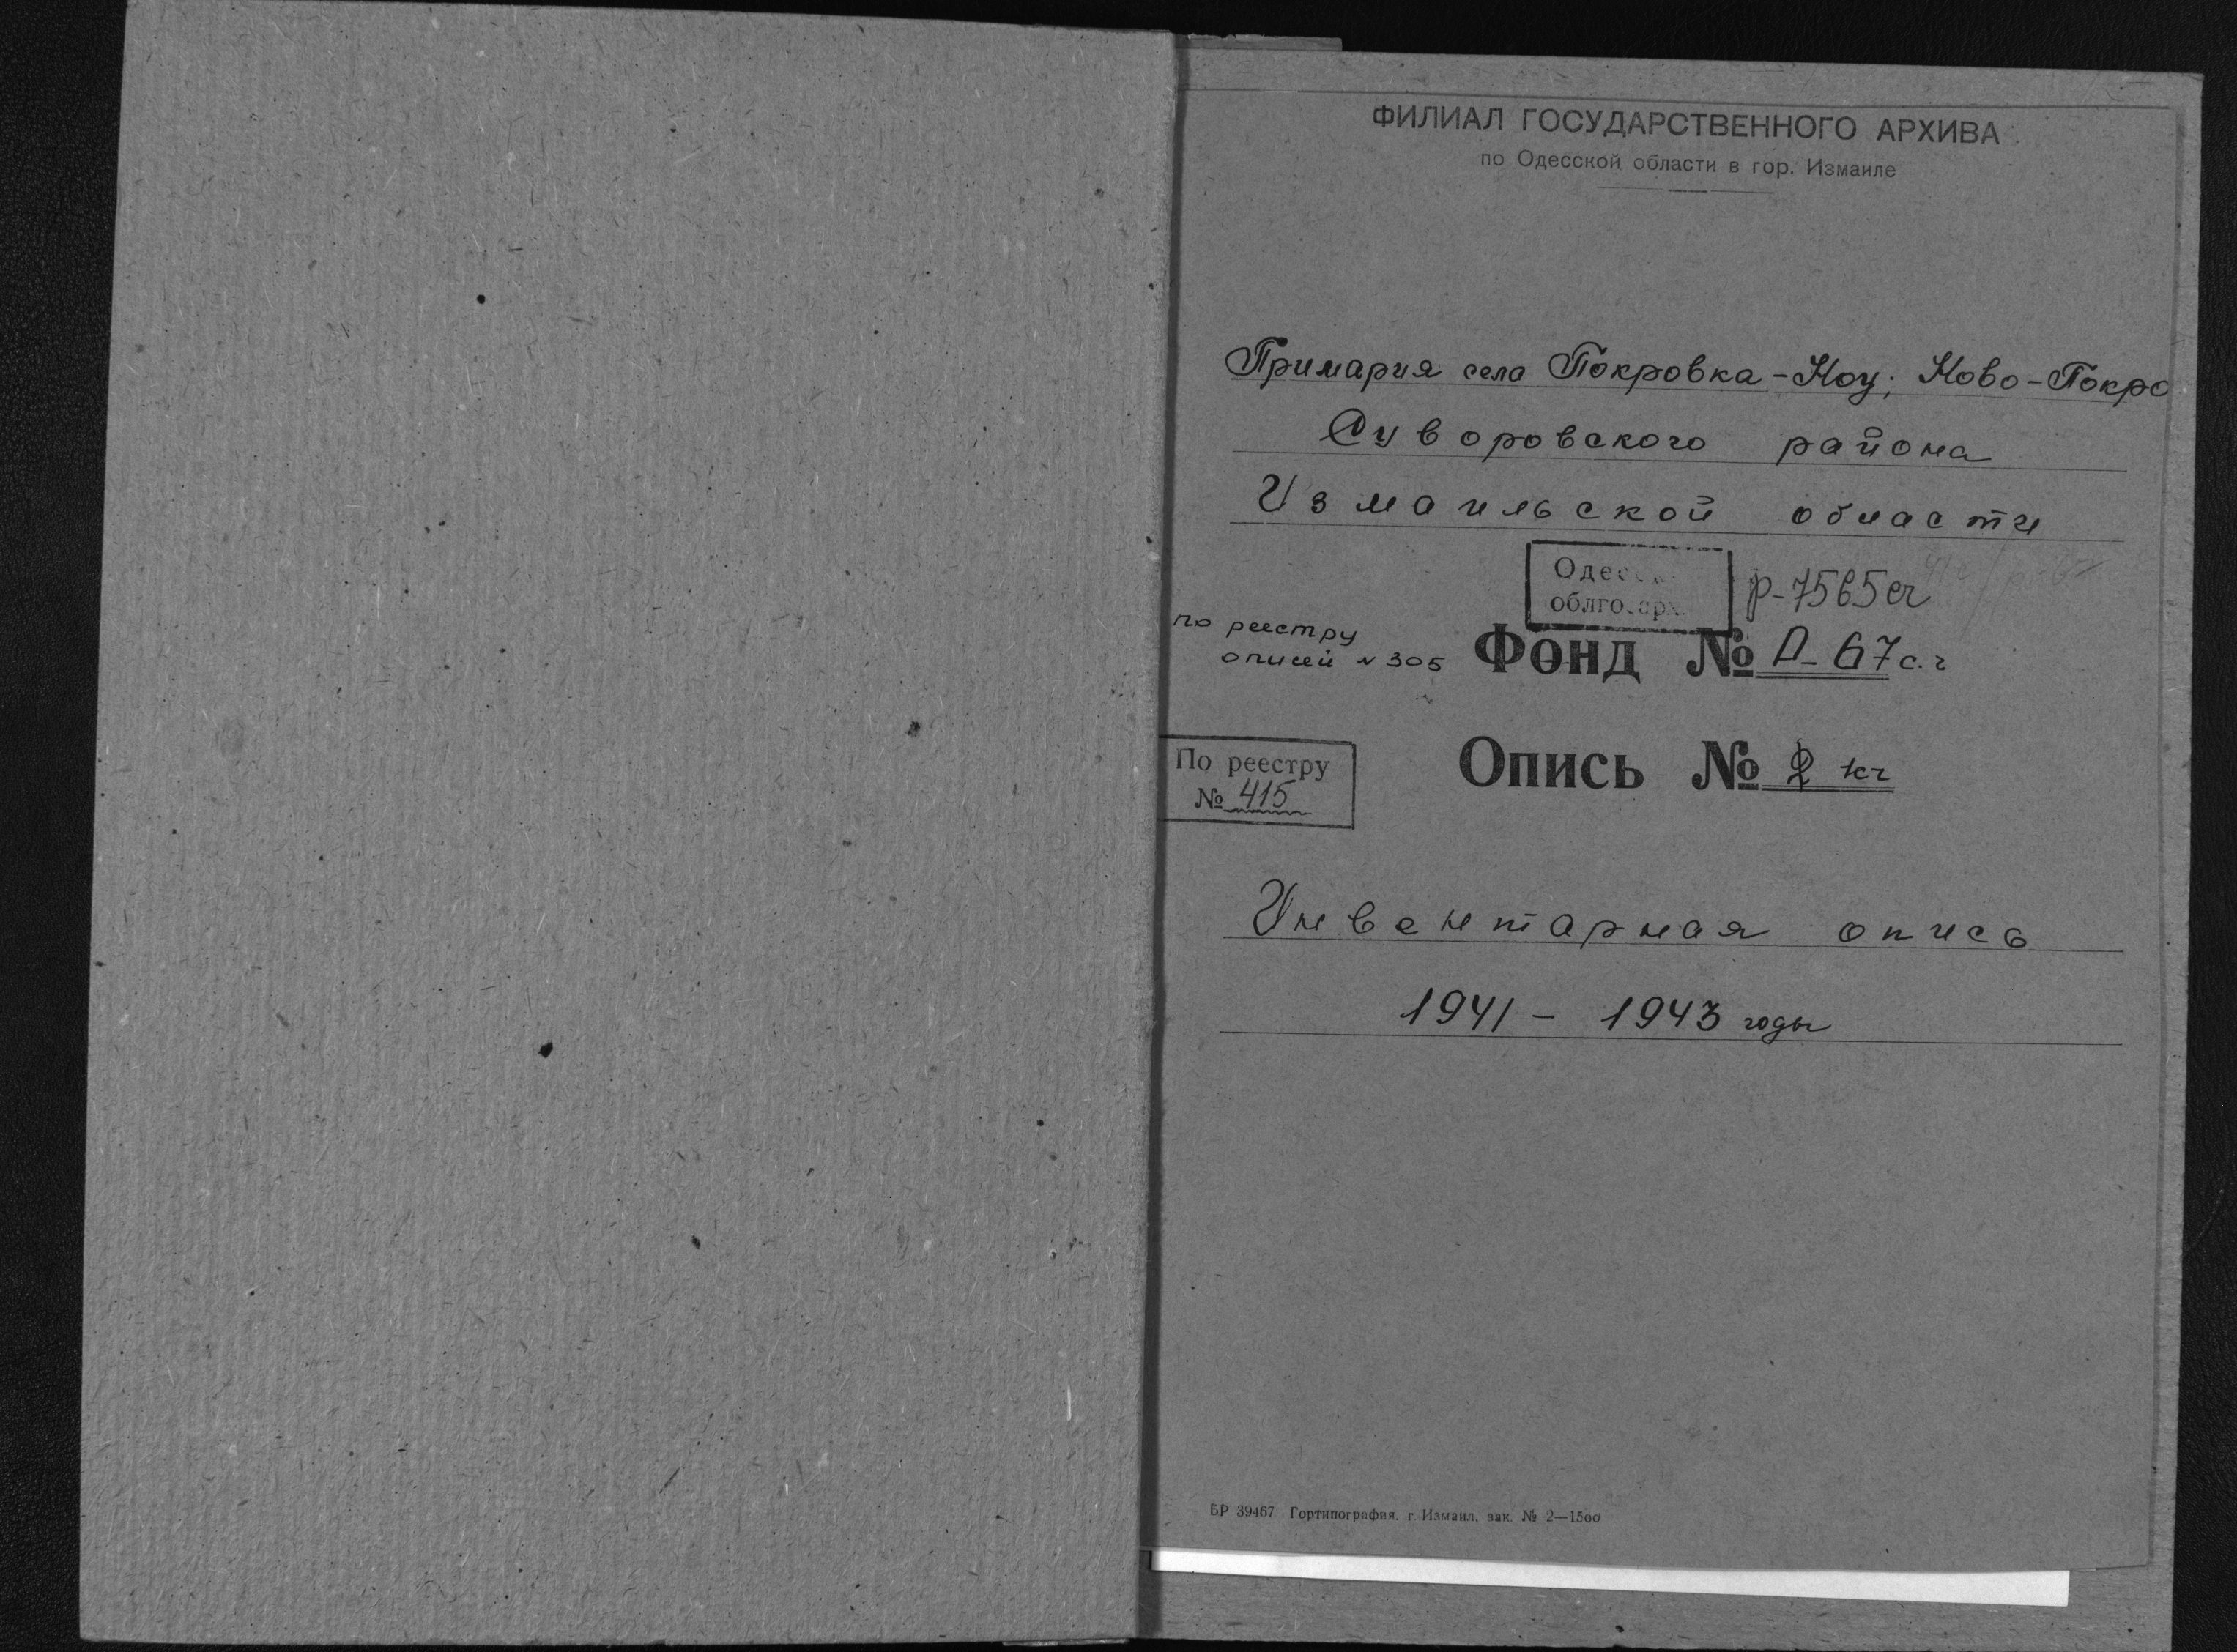 ФИЛИАЛ ГОСУДАРСТВЕННОГО АРХИВА
по Одесской области в гор. Измаиле
Примария села Покровка-Ноу; Ново-Покро
Суворовского района
Измаильской области
облгосарх
р-7565
по реестру
описей № 305
Фонд № П-67 с.ч
По реестру
№ 415
Опись №
Инвентарная опись
1941 - 1943 годы
БР 39467 Гортипография. г. Измаил, зак. № 2—1500